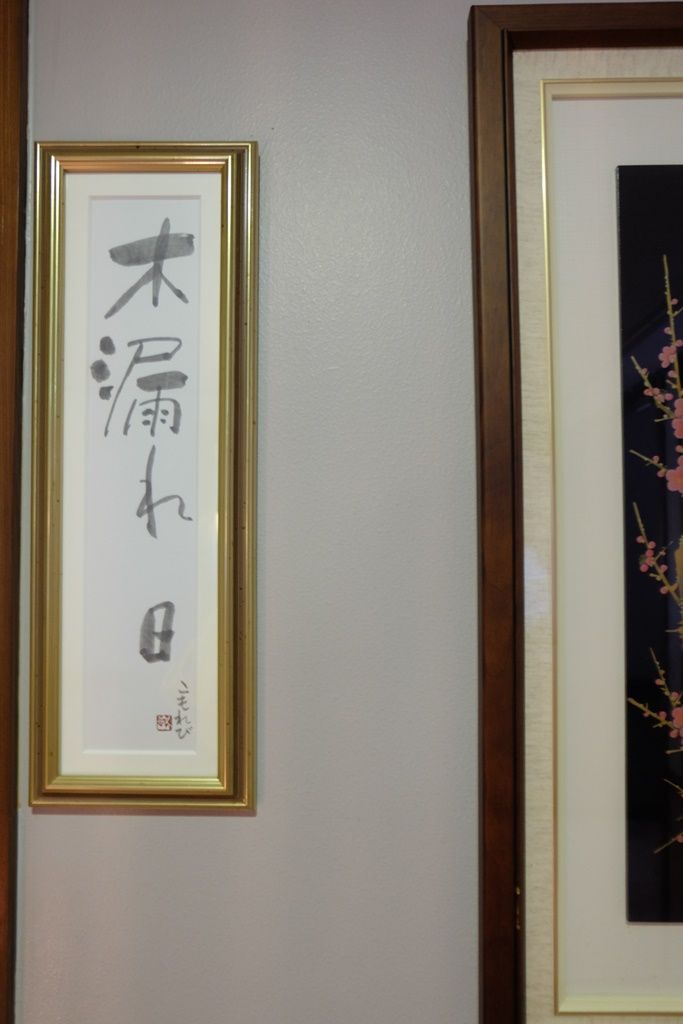 木漏れ日
こもれび